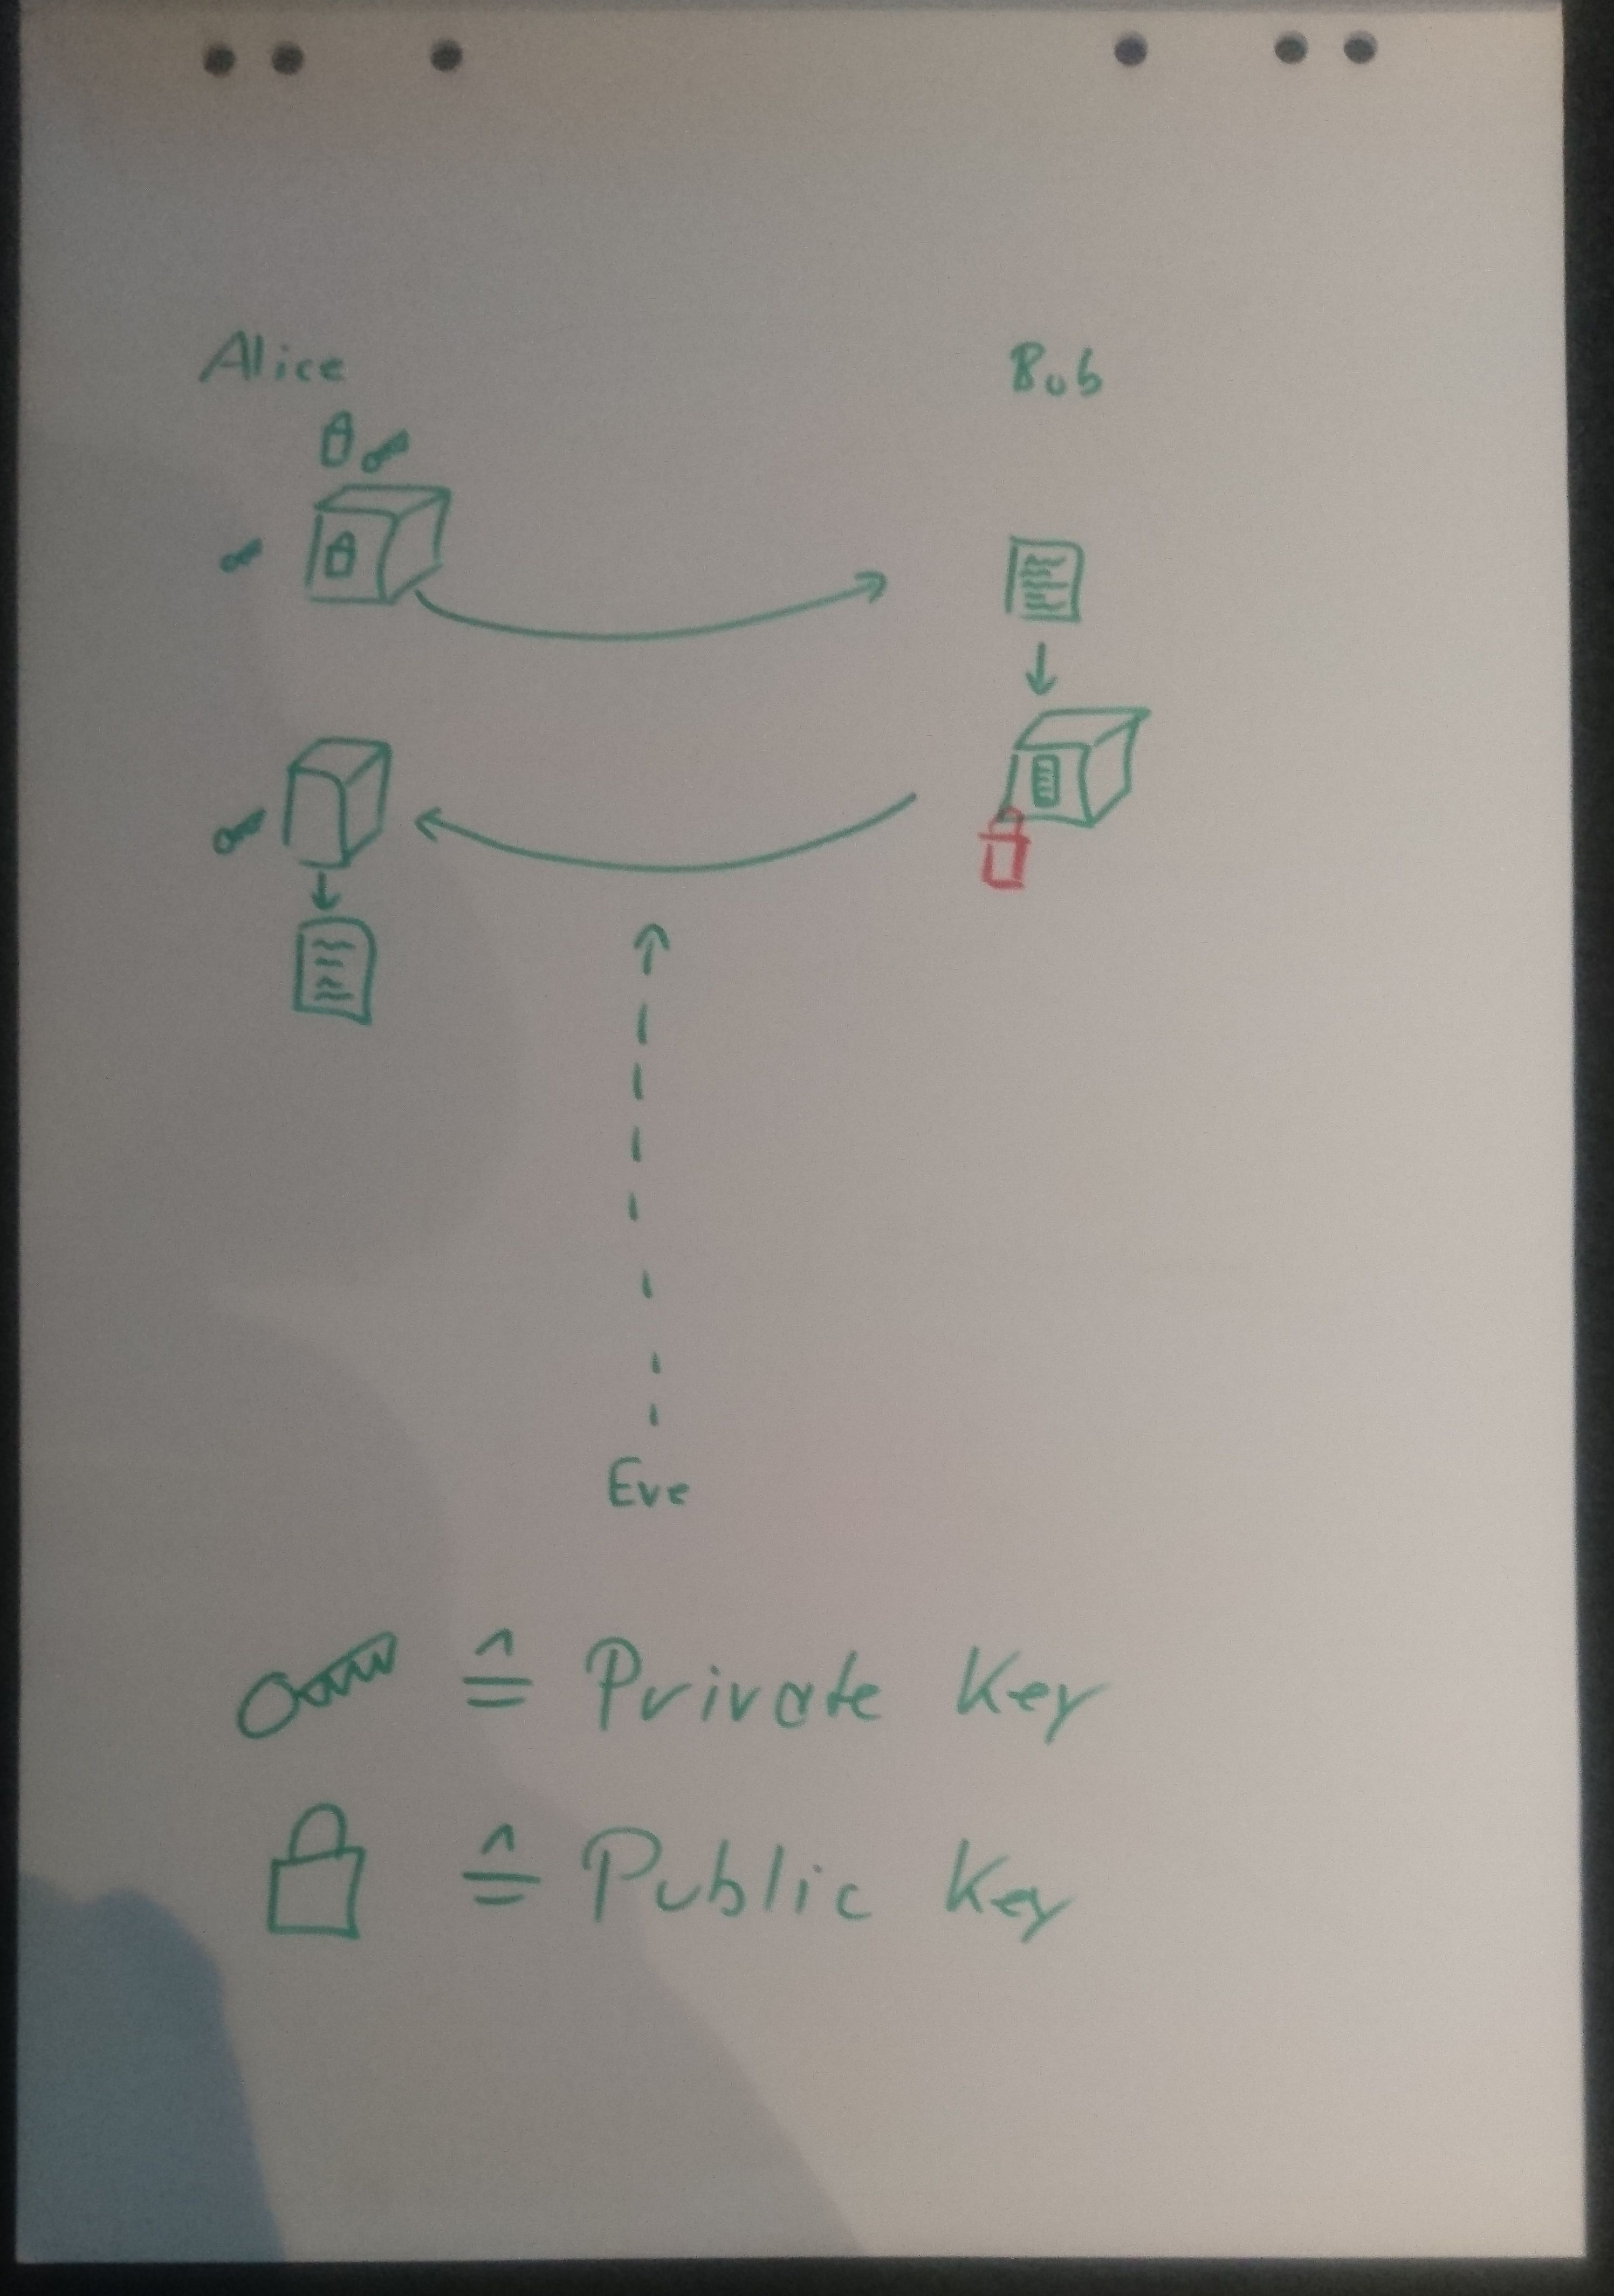 Alice Bob
Eve
≙ Private Key
≙ Public Key